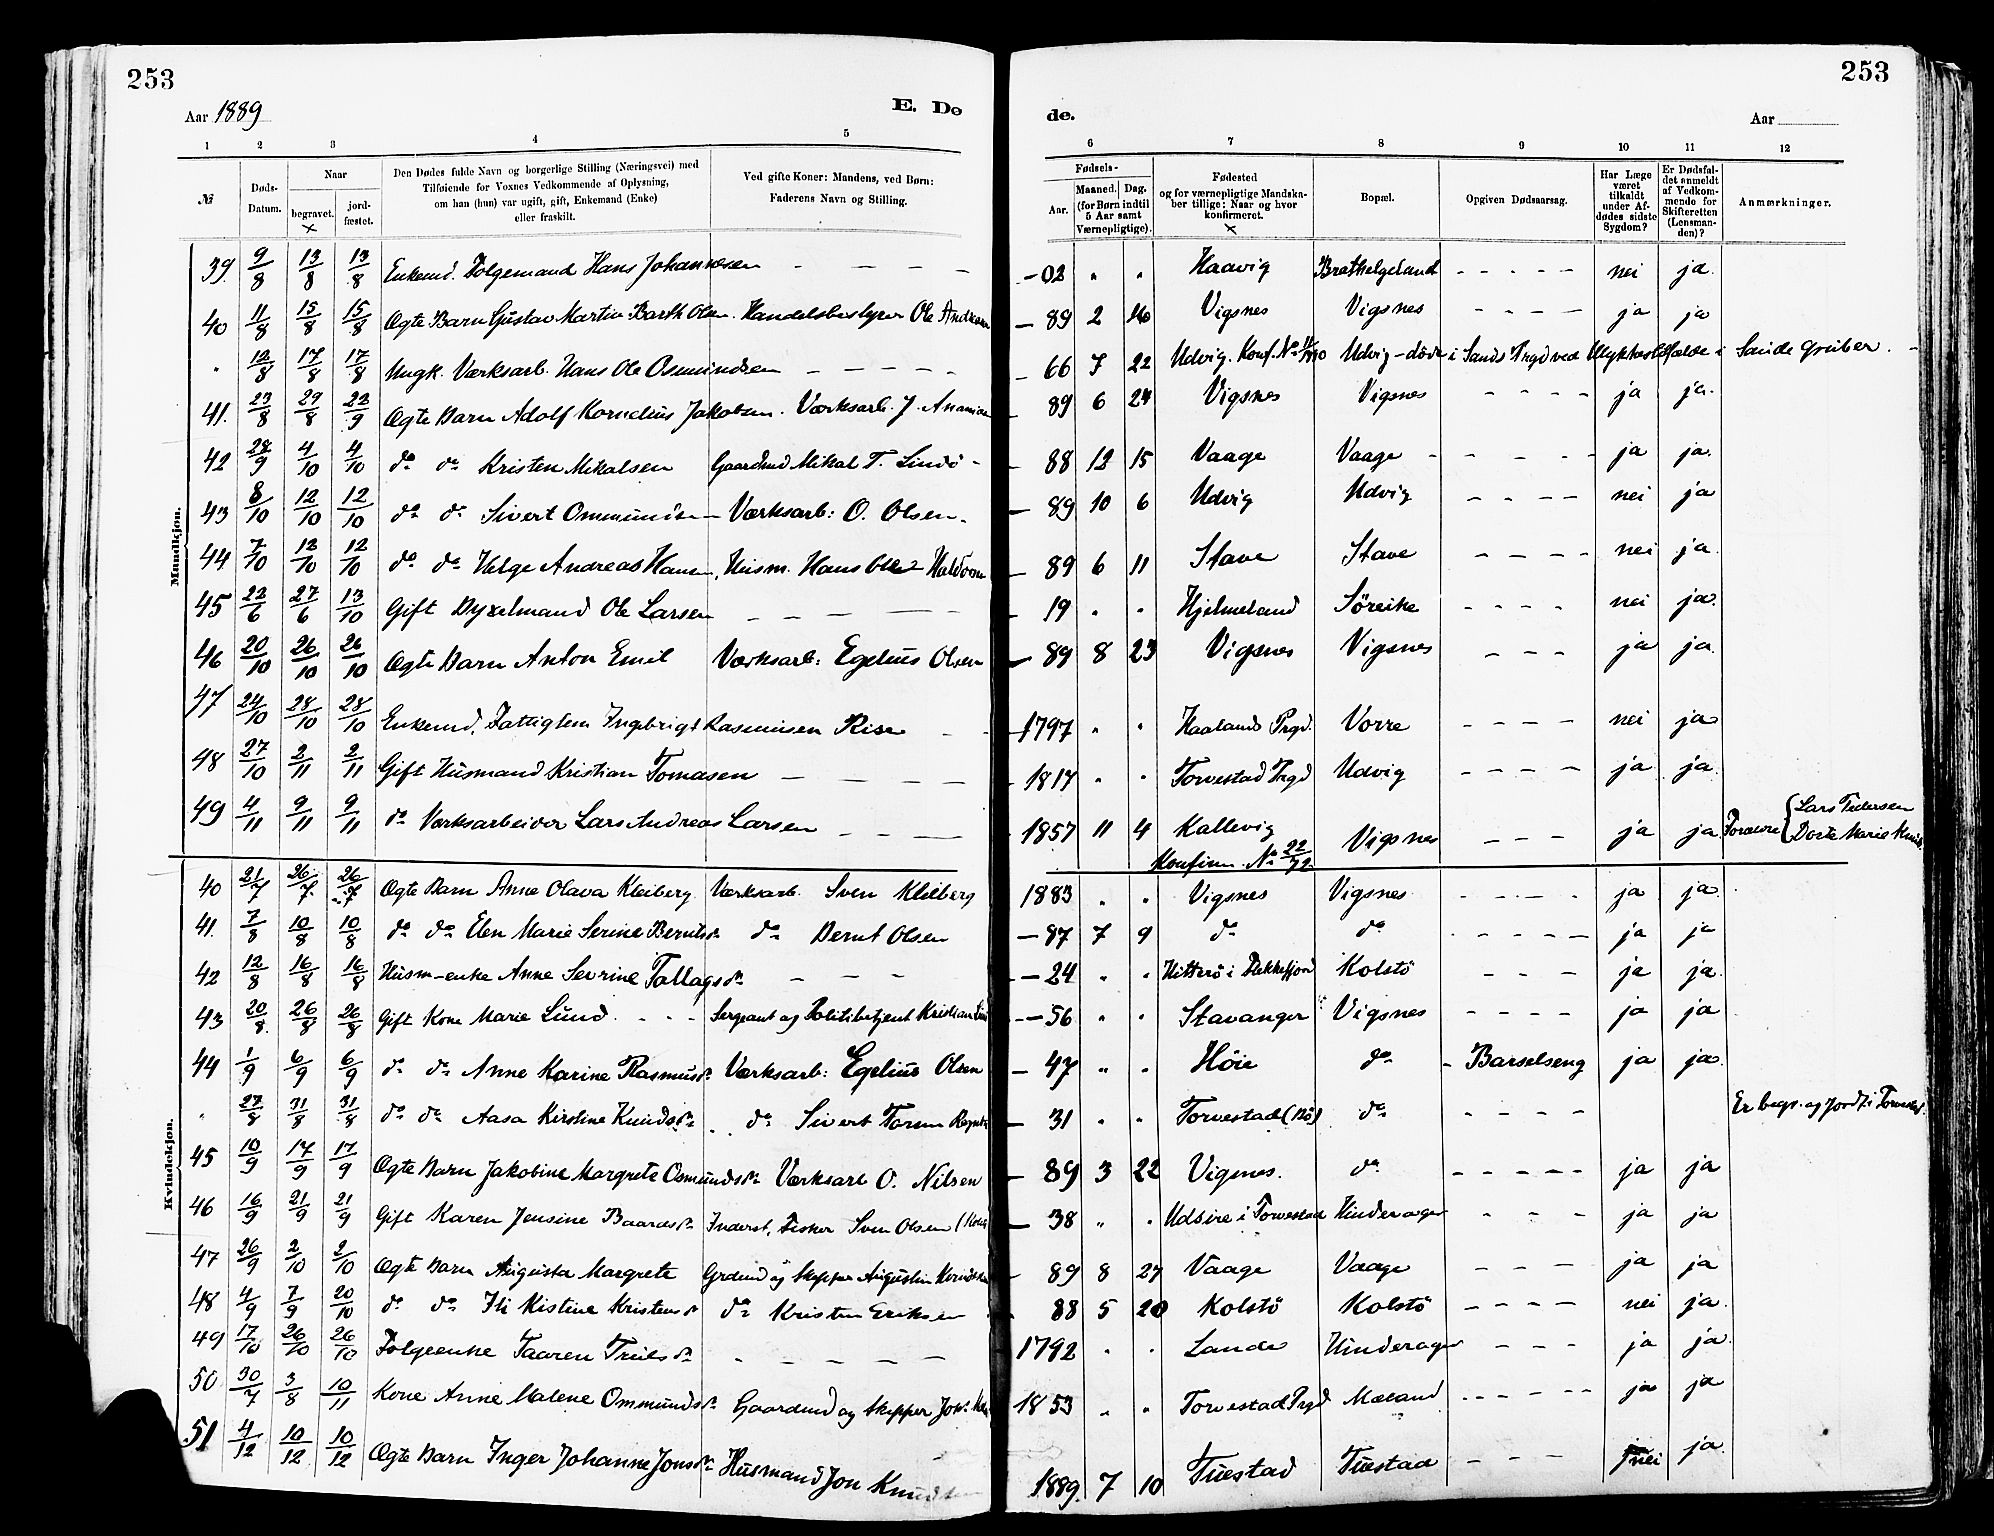 253
253
Aar 1889
E. Dø
de.
Aar
1 2 3 4 5 6 7 8 9 10 11 12
№
Døds-Datum.
Naar
begravet.
jord-fæstet.
Den Dødes fulde Navn og borgerlige Stilling (Næringsvei) med
Tilføiende for Voxnes Vedkommende af Oplysning,
om han (hun) var ugift, gift, Enkemand (Enke)
eller fraskilt.
Ved gifte Koner: Mandens, ved Børn:
Faderens Navn og Stilling.
Fødsels-
Aar.
Maaned. Dag.
(for Børn indtil
5 Aar samt
Værnepligtige).
Fødested
og for værnepligtige Mandskaber tillige: Naar og hvor
konfirmeret.
Bopæl.
Opgiven Dødsaarsag.
Har Læge
været
tilkaldt
under Afdødes sidste
Sygdom?
Er Dødsfaldet anmeldt
af Vedkommende for
Skifteretten
(Lensmanden)?
Anmærkninger.
Mandkjøn.
39. 9/8 13/8 13/8 Enkemd. Folgemand Hans Johannesen — — — — -02 " " Haavig Brathelgeland - - - - - nei ja.
40 11/8 15/8 15/8 Ægte Barn Gustav Martin Barth Olsen. Handelsbestyrer Ole Andersen - 89 2 Vigsnes Vigsnes - - - - ja ja
" 12/8 17/8 17/8 Ungk. Værksarb. Hans Ole Osmundsen — — — — — - 66 7 22 Udvig. Konf. No Udvig - døde i Sands Prgd ved Ulykkestilfælde i Sande Gruber.
41. 23/8 29/8 22/9 Ægte Barn Adolf Kornelius Jakobsen. Værksarb. J. - 89 6 24 Vigsnes Vigsnes - - - - ja ja.
42 28/9 4/10 4/10 do do Kristen Mikalsen Gaardmd Mikal T. Lindø - - 88 12 15 Vaage Vaage - - - - - ja ja.
43 8/10 12/10 12/10 do do Sivert Ommundsen - Værksarb: O. Olsen. - 89 10 6 Udvig Udvig - - - - nei ja
44 7/10 12/10 12/10 do do Helge Andreas Hansen, Husm. Hans Ole Haldorsen - 89 6 11 Stave Stave - - - - nei ja
45 22/6 27/6 13/10 Gift Dyxelmand Ole Larsen — — — — - 19 " " Hjelmeland Søreike - - - - nei ja.
46 20/10 26/10 26/10 Ægte Barn Anton Emil Værksarb: Egelius Olsen - 89 8 23 Vigsnes Vigsnes - - - ja ja.
47 24/10 28/10 28/10 Enkemd. Fattiglem Ingebrigt Rasmussen Rise - - 1797 " " Haalands Prgd. Vorre - - - - nei ja
48 27/10 2/11 2/11 Gift Husmand Kristian Tomasen — — — — - 1817 " " Torvestad Prgd Udvig - - - - ja ja
49 4/11 9/11 9/11 do Værksarbeider Lars Andreas Larsen — — — - 1857 11 4 Kallevig Konfirm. No 22/72 Vigsnes - - - ja ja Forældre { Lars Pedersen
Dorte Marie
Kvindekjøn.
40 21/7 26/7. 26/7 Ægte Barn Anne Olava Kleiberg Værksarb. Sven Kleiberg 1883 " " Vigsnes Vigsnes - - - - ja ja
41. 7/8 10/8 10/8 do do Elen Marie Serine Berntsdr do Bernt Olsen - 87 7 9 do do - - - - - ja ja
42 12/8 16/8 16/8 Husm-enke Anne Sevrine Tallagsdr — — — - 24 " " Hitterö i Flekkefjord Kolstö - - - ja ja.
43 20/8. 26/8 26/8 Gift Kone Marie Lund. - - - Sergeant og Politibetjent Kristian Lund - 56 " " Stavanger Vigsnes - - - - ja ja
44 1/9 6/9 6/9 do do Anne Karine Rasmusdr Værksarb: Egelius Olsen - 47 " " Höie do - Barselseng ja ja.
" 27/8 31/8 31/8 do do Aasa Kirstine Knudsdr. do Sivert - 31 " " Torvestad (Bö) do - - - - Er begr. og Jordf. i Torvestad.
45 10/9 17/9 17/9 Ægte Barn Jakobine Margrete Osmundsdr Værksarb O. Nilsen - 89 3 22 Vigsnes. do - - - - - ja ja
46 16/9 21/9 21/9 Gift Karen Jensine Baardsdr Inderst, Fisker Sven Olsen - 38 " " Udsire i Torvestad Hinderager - - - ja ja
47 26/9 2/10 2/10 Ægte Barn Augusta Margrete Grdmd og Skipper Augustin Knudsen - 89 8 27 Vaage Vaage - - - ja ja
48 4/9 7/9 20/10 do do Kistine Kristensdr do Kristen Eriksen - 88 5 20 Kolstö Kolstö - - - - nei ja.
49 17/10 26/10 26/10 Folgeenke Taaren Truelsdr — — — — — 1792 " " Lande Hinderager - - - ja ja.
50 30/7 3/8 10/11 Kone Anne Malene Ommundsdr Gaardmd og Skipper 1853 " " Torvestad Prgd Mæland - - - - - ja ja
51 4/12 10/12 10/12 Ægte Barn Inger Johanne Jonsdr Husmand Jon Knudsen 1889. 7 10 Tuestad Tuestad - - - nei ja